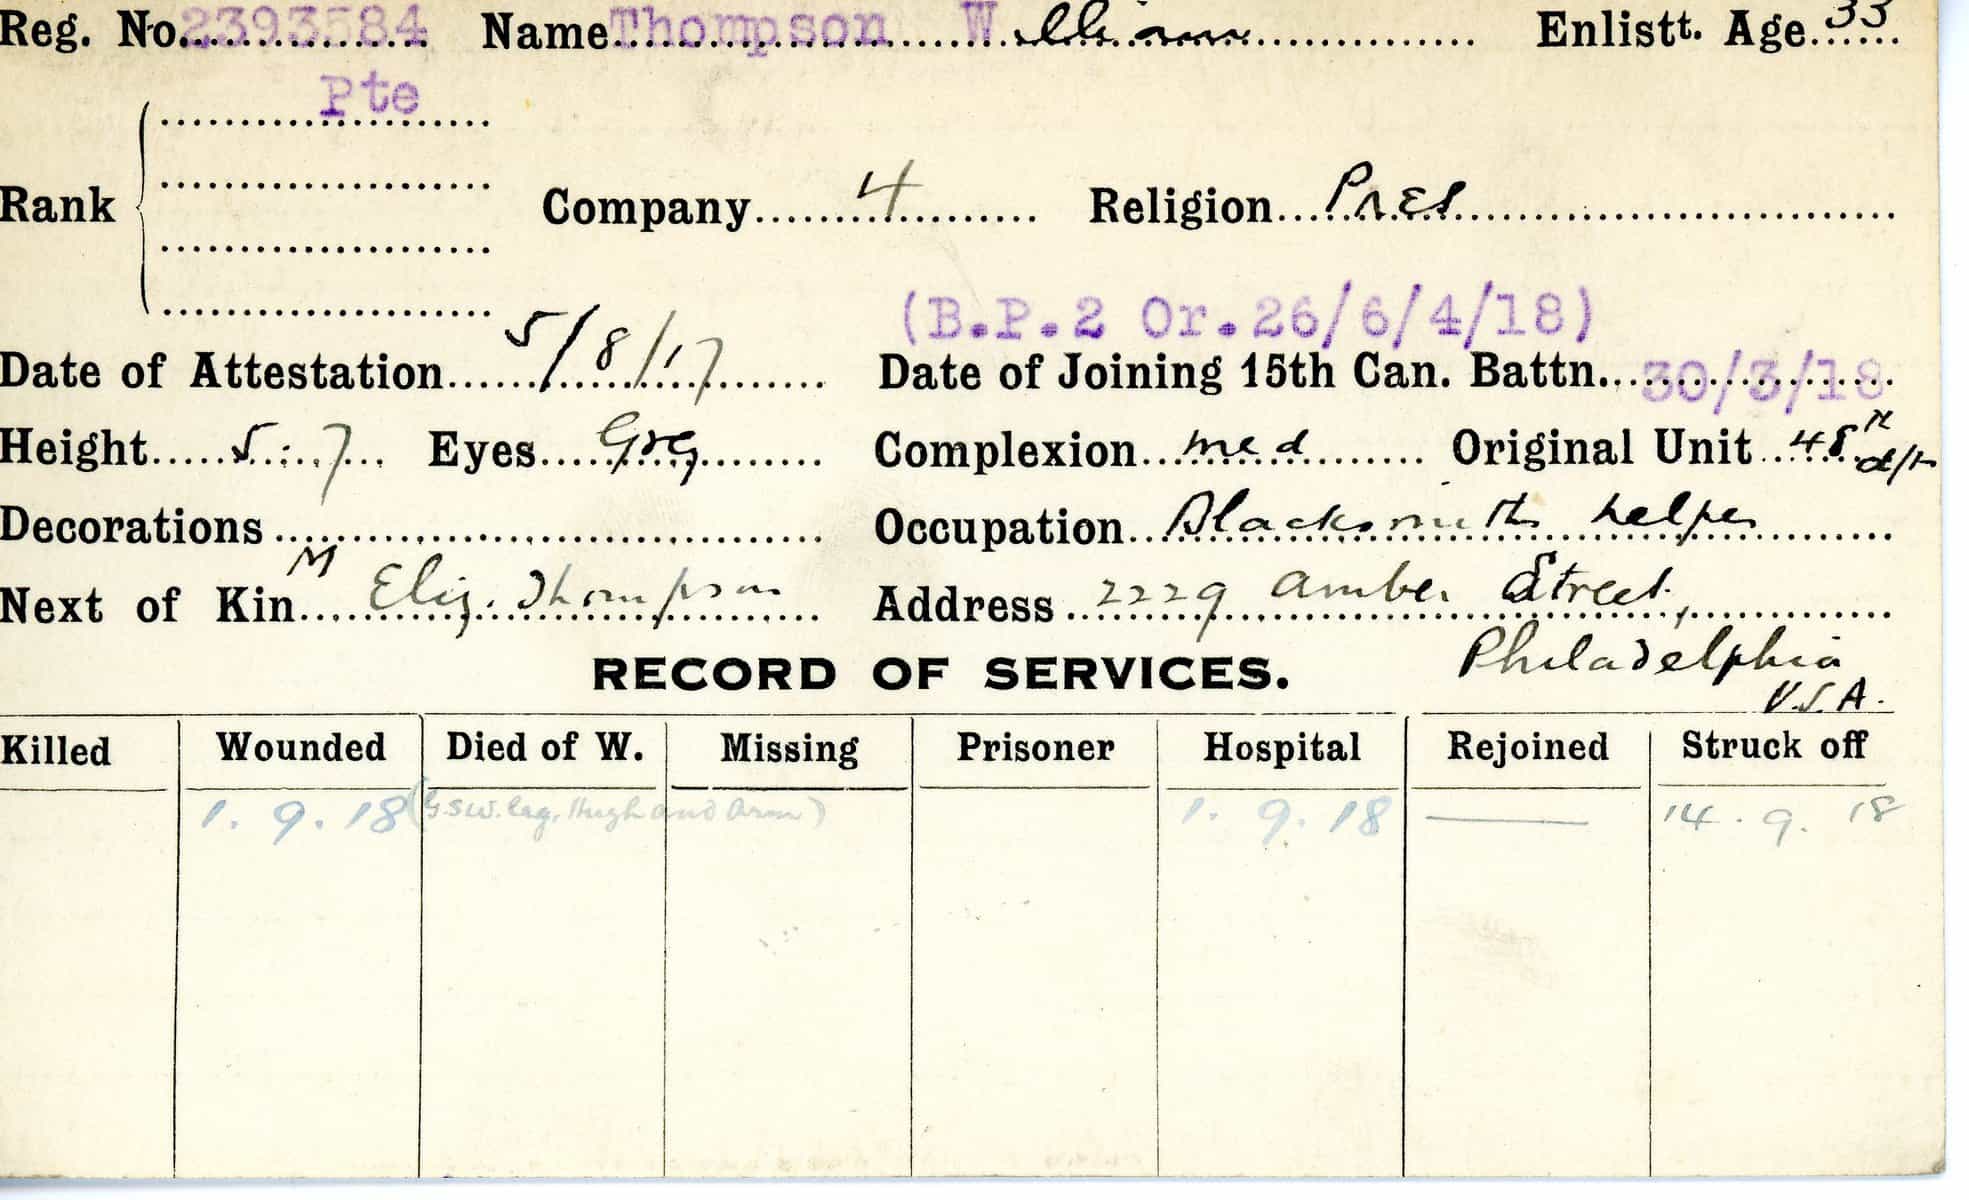 Reg. No. 2393584 Name Thompson William Enlistt. Age 33
Pte
Rank Company 4 Religion Pres
(B.P.2 Or.26/6/4/18)
Date of Attestation 5/8/17 Date of Joining 15th Can. Battn. 30/3/18
Height 5.7 Eyes Gry Complexion med Original Unit 48
Decorations Occupation Blacksmith helper
M
Next of Kin Eliz. Thompson Address 2229 Amber Street,
RECORD OF SERVICES. Philadelphia
U.S.A.
Killed Wounded Died of W. Missing Prisoner Hospital Rejoined Struck off
1.9.18 (G.S.W. Leg, thigh and Arm) 1.9.18 — 14.9.18